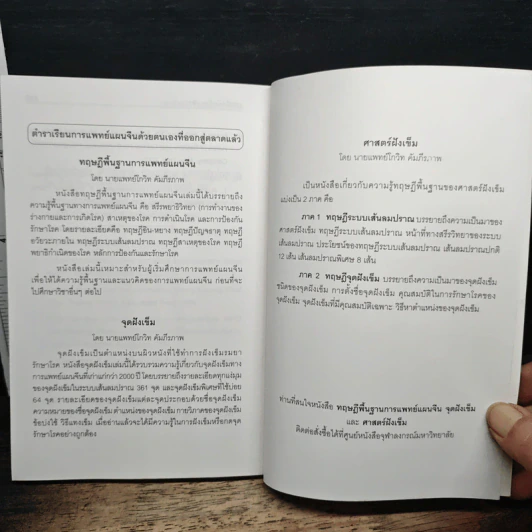 ตำราเรียนการแพทย์แผนจีนด้วยตนเองที่ออกสู่ตลาดแล้ว
ทฤษฎีพื้นฐานการแพทย์แผนจีน
โดย นายแพทย์โกวิท คัมภีรภาพ
หนังสือทฤษฎีพื้นฐานการแพทย์แผนจีนเล่มนี้ได้บรรยายถึง
ความรู้พื้นฐานทางการแพทย์แผนจีน คือ สรีรพยาธิวิทยา (การทำงานของ
ร่างกายและการเกิดโรค) สาเหตุของโรค การดำเนินโรค และการป้องกัน
รักษาโรค โดยรายละเอียดคือ ทฤษฎีอิน-หยาง ทฤษฎีปัญจธาตุ ทฤษฎี
อวัยวะภายใน ทฤษฎีระบบเส้นลมปราณ ทฤษฎีสาเหตุของโรค ทฤษฎี
พยาธิกำเนิดของโรค หลักการป้องกันและรักษาโรค
หนังสือเล่มนี้เหมาะสำหรับผู้เริ่มศึกษาการแพทย์แผนจีน
เพื่อให้ได้ความรู้พื้นฐานและแนวคิดของการแพทย์แผนจีน ก่อนที่จะ
ไปศึกษาวิชาอื่นๆ ต่อไป
จุดฝังเข็ม
โดย นายแพทย์โกวิท คัมภีรภาพ
จุดฝังเข็มเป็นตำแหน่งบนผิวหนังที่ใช้ทำการฝังเข็มรมยา
รักษาโรค หนังสือจุดฝังเข็มเล่มนี้ได้รวบรวมความรู้เกี่ยวกับจุดฝังเข็มทาง
การแพทย์แผนจีนที่เก่าแก่กว่า 2000 ปี โดยบรรยายถึงรายละเอียดทุกแง่มุม
ของจุดฝังเข็มในระบบเส้นลมปราณ 361 จุด และจุดฝังเข็มพิเศษที่ใช้บ่อย
64 จุด รายละเอียดของจุดฝังเข็มแต่ละจุดประกอบด้วยชื่อจุดฝังเข็ม
ความหมายของชื่อจุดฝังเข็ม ตำแหน่งของจุดฝังเข็ม กายวิภาคของจุดฝังเข็ม
ข้อบ่งใช้ วิธีแทงเข็ม เมื่ออ่านแล้วจะได้มีความรู้ในการฝังเข็มหรือกดจุด
รักษาโรคอย่างถูกต้อง
ศาสตร์ฝังเข็ม
โดย นายแพทย์โกวิท คัมภีรภาพ
เป็นหนังสือเกี่ยวกับความรู้ทฤษฎีพื้นฐานของศาสตร์ฝังเข็ม
แบ่งเป็น 2 ภาค คือ
ภาค 1 ทฤษฎีระบบเส้นลมปราณ บรรยายถึงความเป็นมาของ
ศาสตร์ฝังเข็ม ทฤษฎีระบบเส้นลมปราณ หน้าที่ทางสรีรวิทยาของระบบ
เส้นลมปราณ ประโยชน์ของทฤษฎีระบบเส้นลมปราณ เส้นลมปราณปกติ
12 เส้น เส้นลมปราณพิเศษ 8 เส้น
ภาค 2 ทฤษฎีจุดฝังเข็ม บรรยายถึงความเป็นมาของจุดฝังเข็ม
ชนิดของจุดฝังเข็ม การตั้งชื่อจุดฝังเข็ม คุณสมบัติในการรักษาโรคของ
จุดฝังเข็ม จุดฝังเข็มที่มีคุณสมบัติเฉพาะ วิธีหาตำแหน่งของจุดฝังเข็ม
ท่านที่สนใจหนังสือ ทฤษฎีพื้นฐานการแพทย์แผนจีน จุดฝังเข็ม
และ ศาสตร์ฝังเข็ม
ติดต่อสั่งซื้อได้ที่ศูนย์หนังสือจุฬาลงกรณ์มหาวิทยาลัย